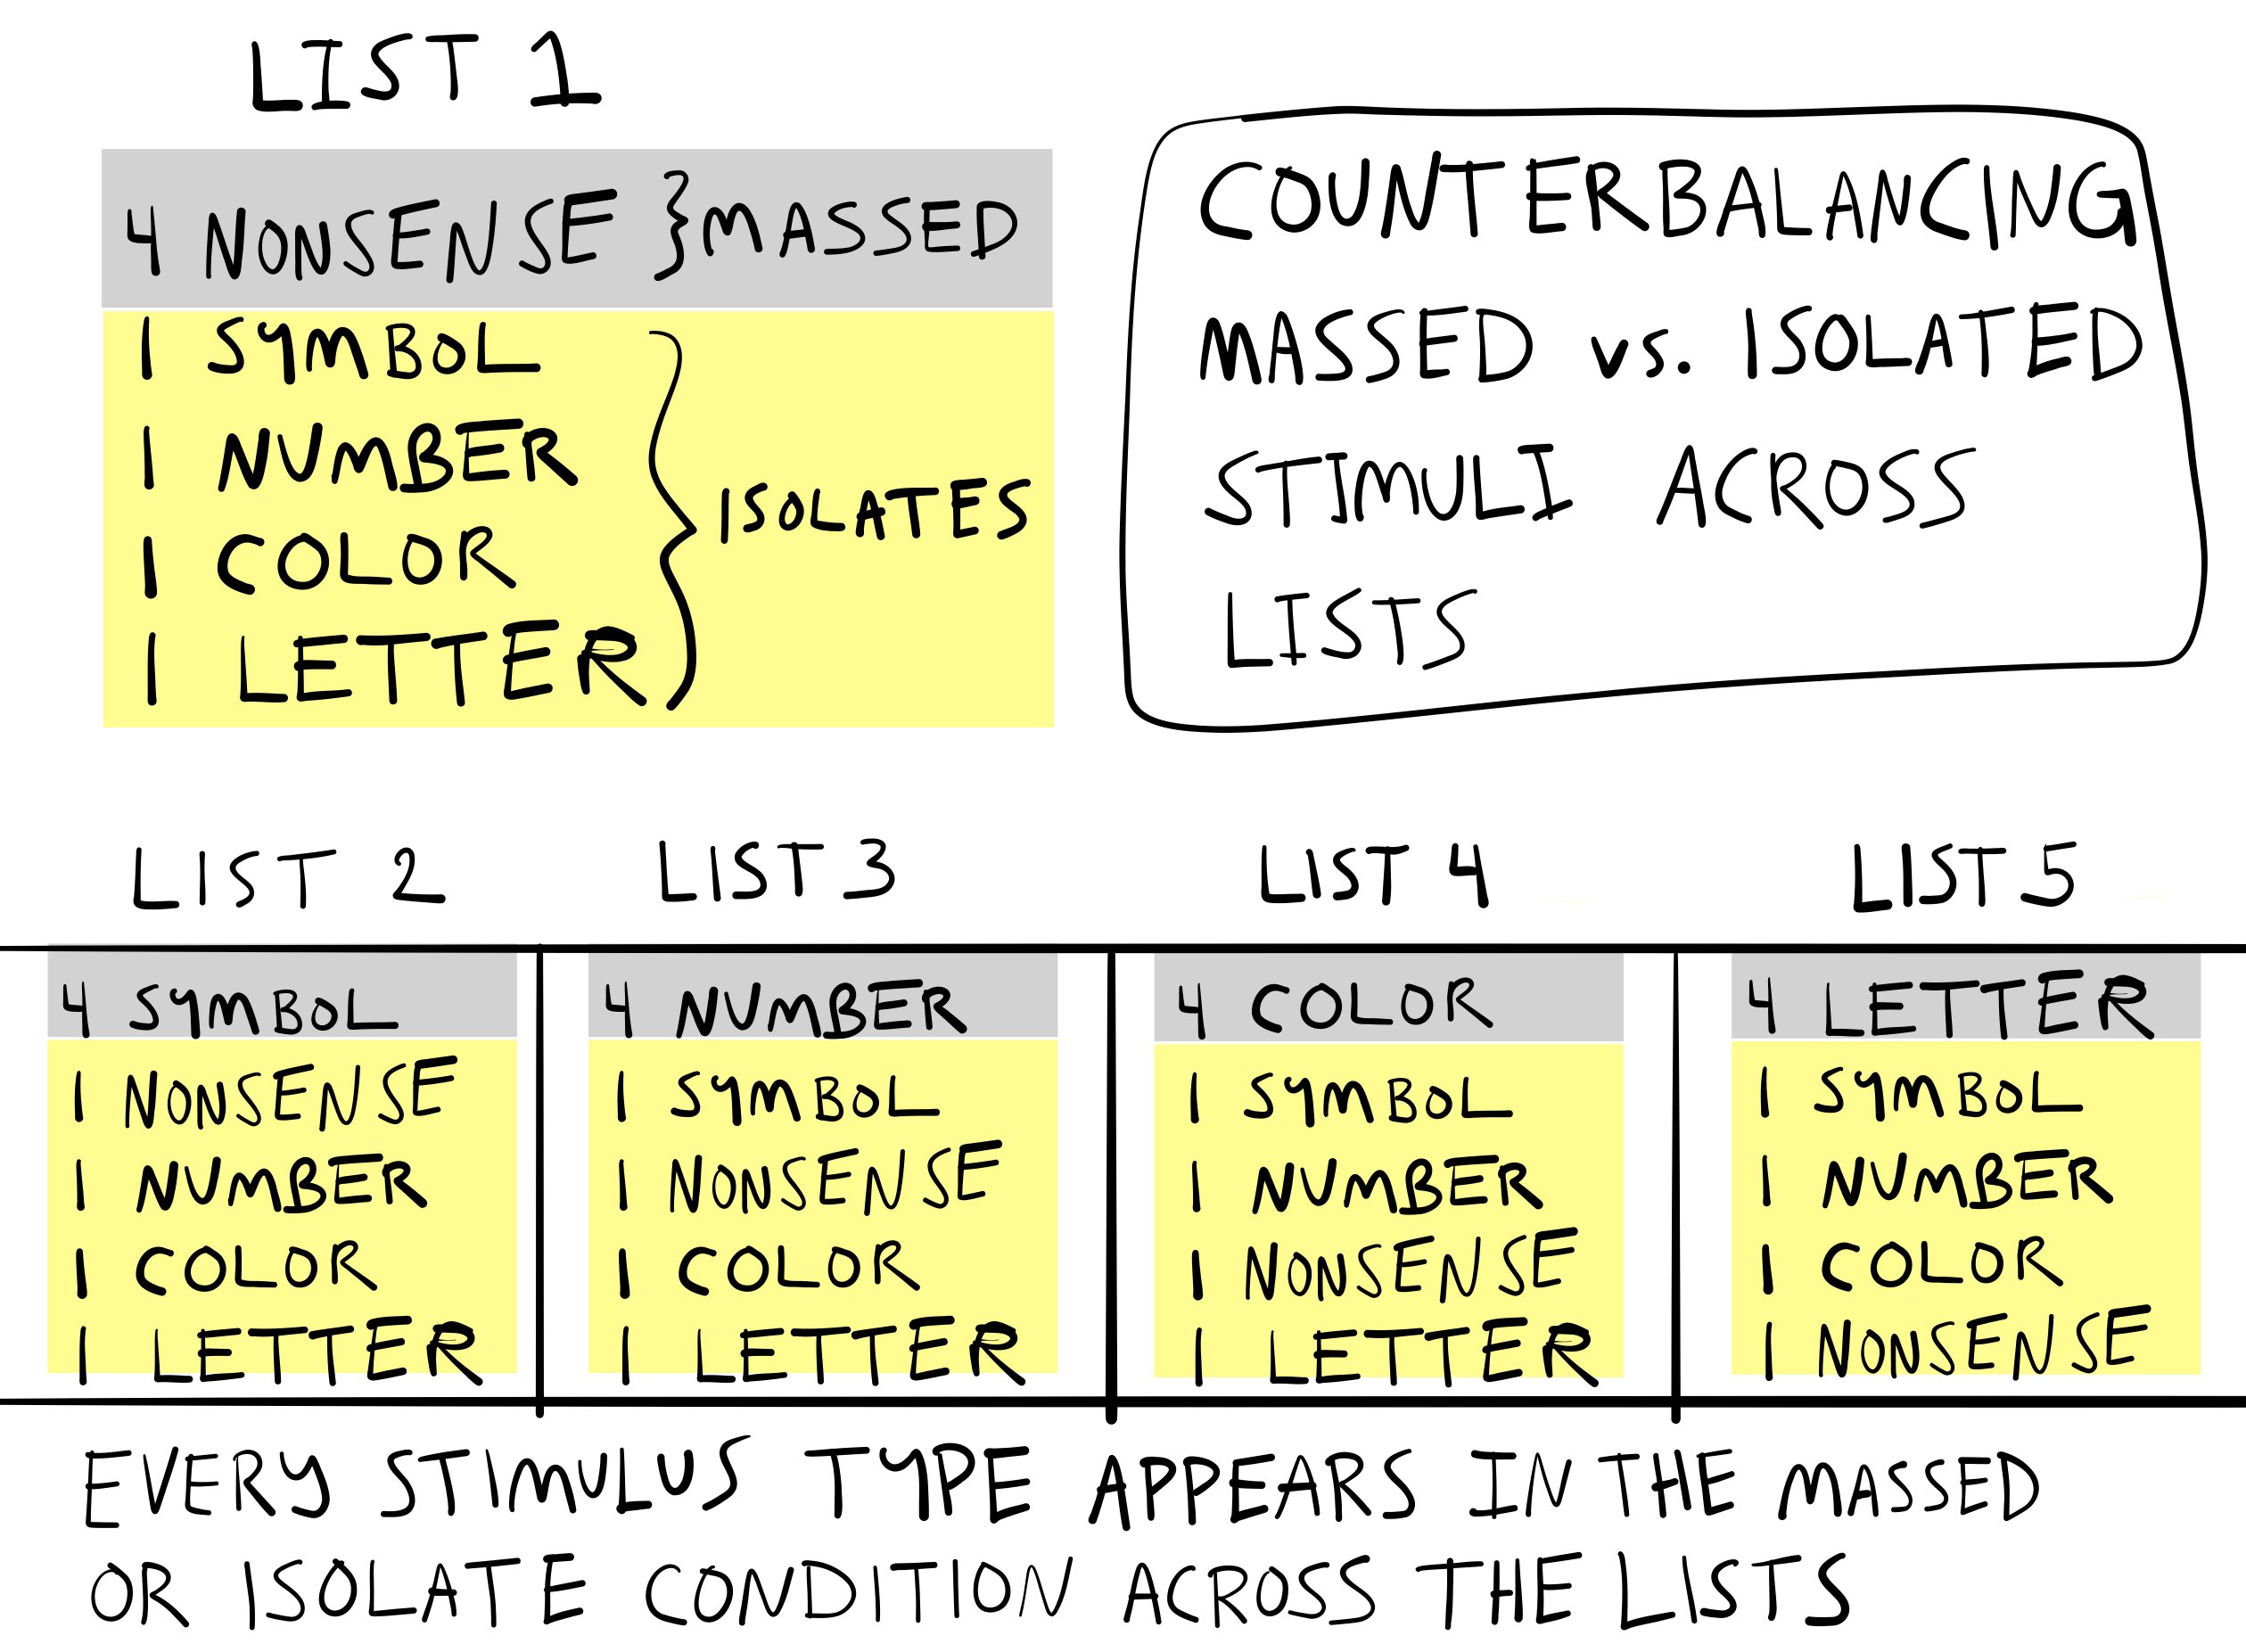 LIST 1
4 NONSENSE } MASSED
1 SYMBOL
1 NUMBER
1 COLOR
1 LETTER
ISOLATES
COUNTERBALANCING
MASSED vs. ISOLATED
STIMULI ACROSS
LISTS
LIST 2
4 SYMBOL
1 NONSENSE
1 NUMBER
1 COLOR
1 LETTER
LIST 3
4 NUMBER
1 SYMBOL
1 NONSENSE
1 COLOR
1 LETTER
LIST 4
4 COLOR
1 SYMBOL
1 NUMBER
1 NONSENSE
1 LETTER
LIST 5
4 LETTER
1 SYMBOL
1 NUMBER
1 COLOR
1 NONSENSE
EVERY STIMULUS TYPE APPEARS IN THE MASSED
OR ISOLATE CONDITION ACROSS THE LISTS